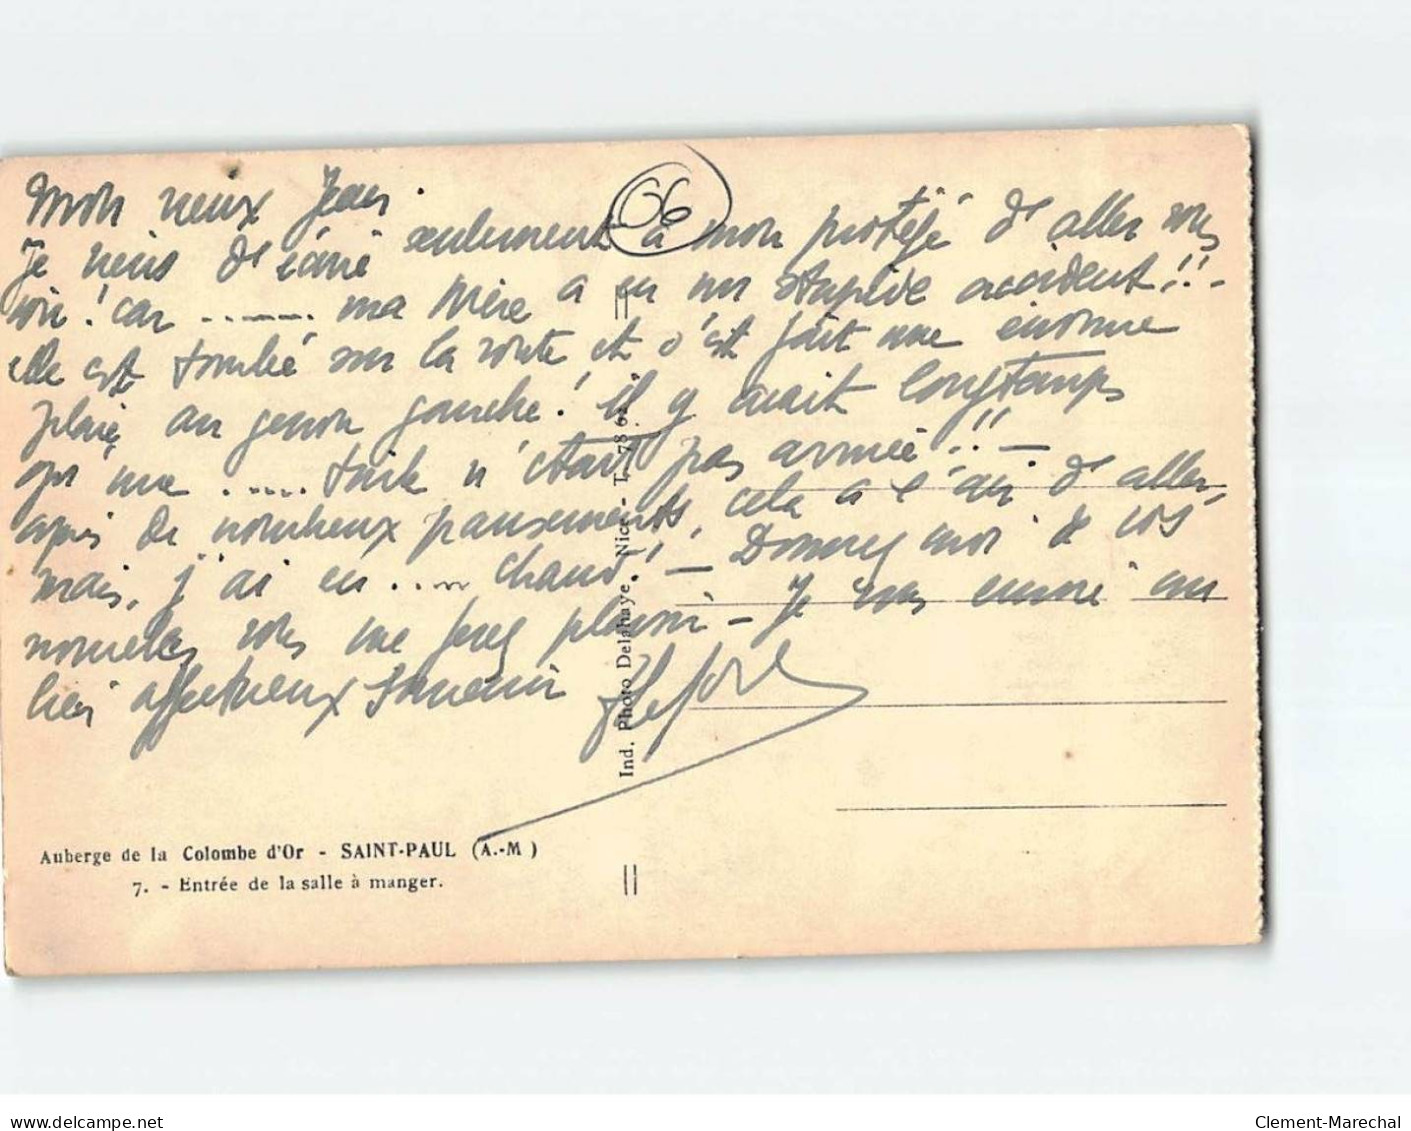 Mon vieux Jean.
66
Je viens d'écrire seulement à mon protégé d'aller vous
voir! car ......... ma Mère a eu un stupide accident!!-
elle est tombée sur la route et s'est fait une énorme
plaie au genou gauche! il y avait longtemps
qu'une ...... tuile n'était pas arrivée!! -
après de nombreux pansements, cela a l'air d'aller,
mais, j'ai eu ..... chaud! - Donnez moi de vos
nouvelles vous me ferez plaisir - Je vous envoie un
bien affectueux souvenir
Auberge de la Colombe d'Or - SAINT-PAUL (A.-M)
7. - Entrée de la salle à manger.
Ind. Photo Delahaye, Nice - T. 7862
www.delcampe.net
Clement-Marechal